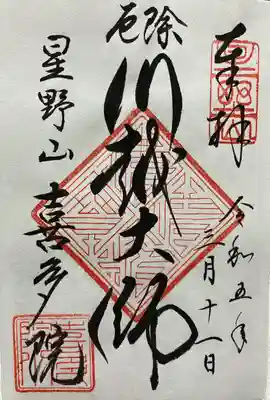 奉拝
令和五年
三月十一日
厄除
川越大師
星野山喜多院